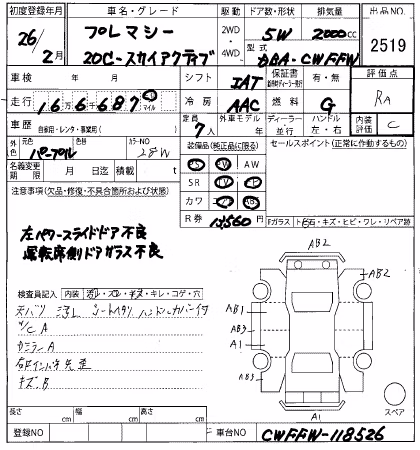 初度登録年月 車名・グレード 駆動 ドア数・形状 排気量 出品NO.
26/2月 プレマシー 2WD 5W 2000cc 2519
20C-スカイアクティブ 4WD 型式 DBA-CWFFW
車検 年 月 シフト IAT 保証書 有・無 評価点
走行 166,687 マイル 冷房 AAC 燃料 G RA
車歴 自家用・レンタ・事業用( ) 定員 7人 外車モデル 年 ディーラー 並行 ハンドル 左・右 内装評価 C
外色 元色 パープル 色替 カラーNO 28W 装備品(純正品に限る) セールスポイント(正常に作動するもの)
名義変更期限 月 日 積載 t PS PW AW
注意事項(欠品・修復・不具合箇所および状態) SR TV
カワ
R券 13,560 Fガラス トビ石・キズ・ヒビ・ワレ・リペア跡
左パワースライドドア不良
運転席側ドアガラス不良
AB2
AB2
検査員記入 内装 キレ・コゲ・穴
AB1
AB3
A1
AB3
A1
スペア
キズB
長さ cm 幅 cm 高さ cm
登録NO 車台NO CWFFW-118526